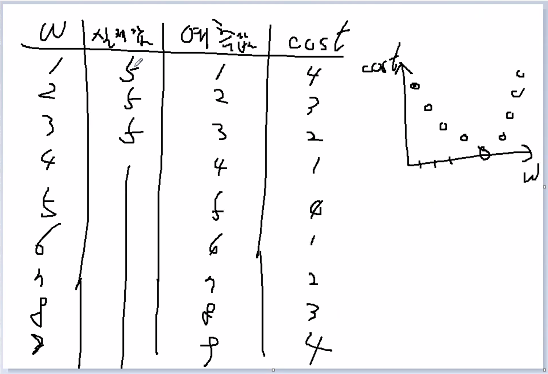 W 실제값 예측값 cost
1 5 1 4
2 5 2 3
3 5 3 2
4 4 1
5 5 0
6 6 1
7 7 2
8 8 3
9 9 4
cost
W